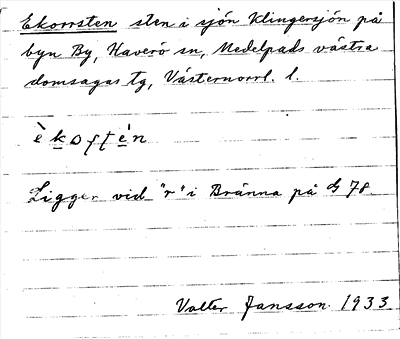 Ekorrsten sten i sjön Klingersjön på
byn By, Haverö sn, Medelpads västra
domsagas tg, Västernorrl. l.
Ligger vid "r" i Bränna på G 78.
Valter Jansson 1933